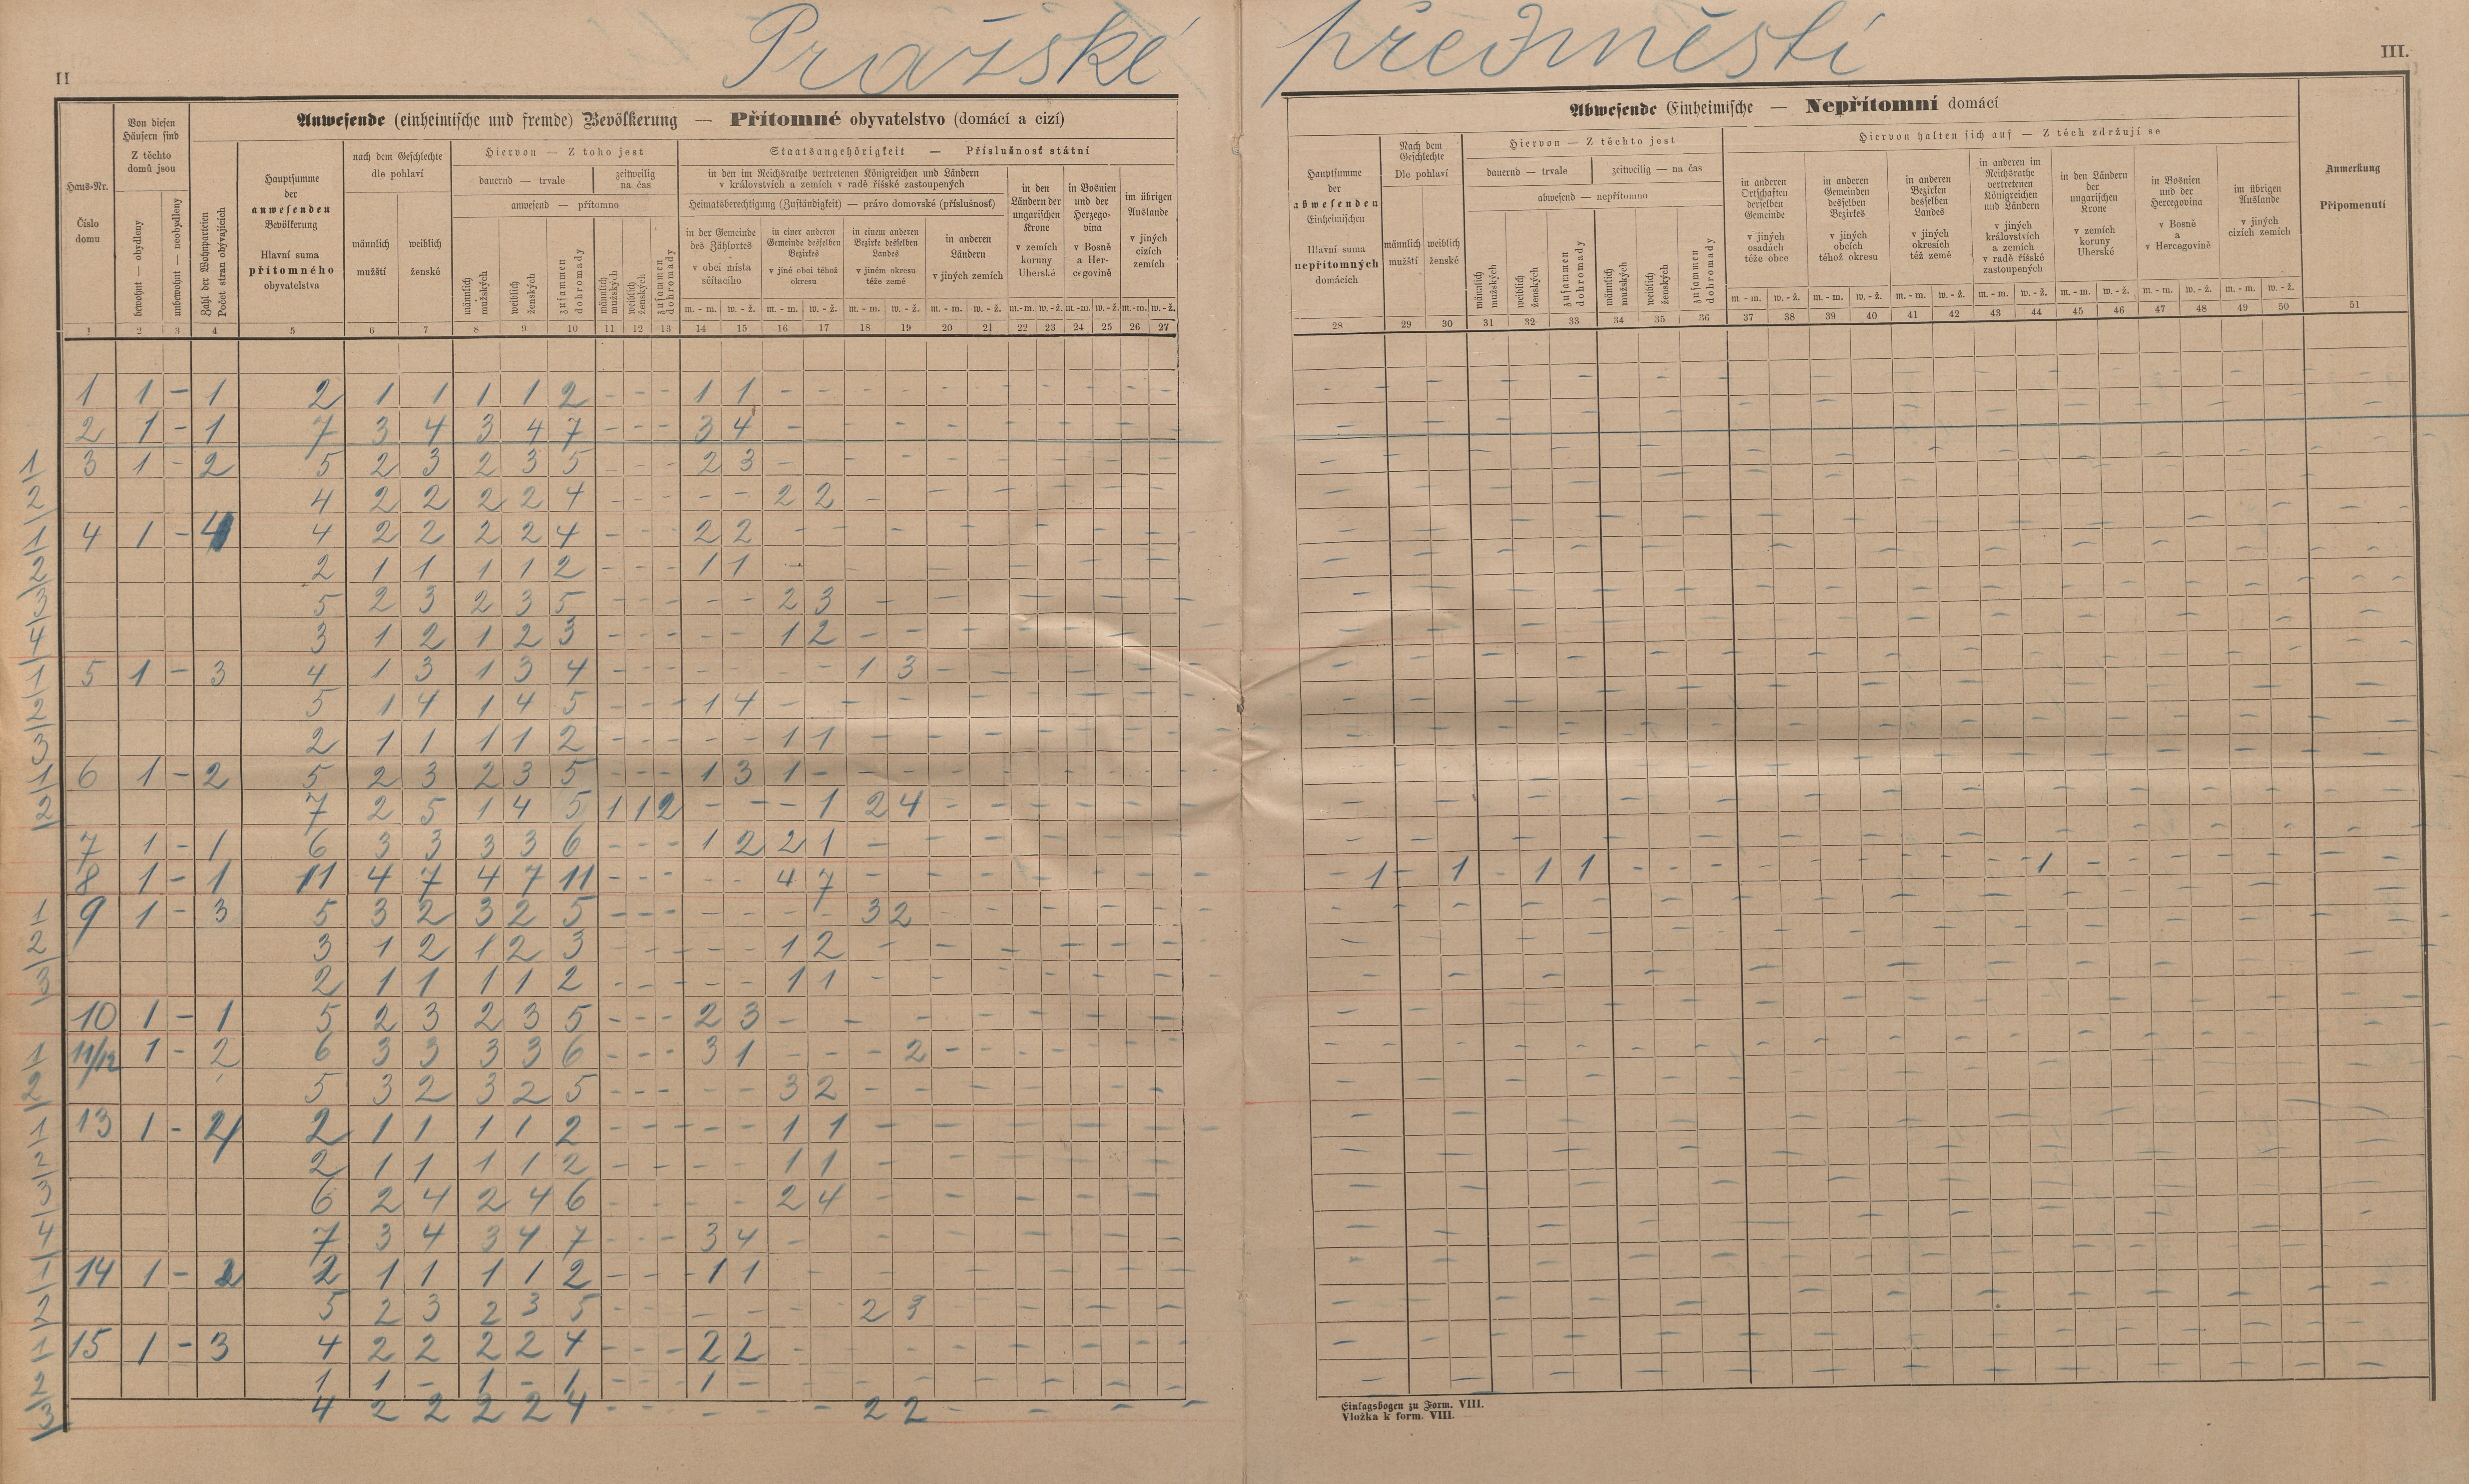 Pražské předměstí
II
III.
Anwesende (einheimische und fremde) Bevölkerung — Přítomné obyvatelstvo (domácí a cizí)
Haus-Nr.
Číslo domu
Von diesen Häusern sind
Z těchto domů jsou
bewohnt — obydleny
unbewohnt — neobydleny
Zahl der Wohnparteien
Počet stran obývajících
Hauptsumme der anwesenden Bevölkerung
Hlavní suma přítomného obyvatelstva
nach dem Geschlechte
dle pohlaví
männlich
mužští
weiblich
ženské
Hiervon — Z toho jest
dauernd — trvale
zeitweilig
na čas
anwesend — přítomno
männlich mužských
weiblich ženských
zusammen dohromady
männlich mužských
weiblich ženských
zusammen dohromady
Staatsangehörigkeit — Příslušnost státní
in den im Reichsrathe vertretenen Königreichen und Ländern
v královstvích a zemích v radě říšské zastoupených
Heimatsberechtigung (Zuständigkeit) — právo domovské (příslušnosť)
in der Gemeinde des Zählortes
v obci místa sčítacího
in einer anderen Gemeinde desselben Bezirkes
v jiné obci téhož okresu
in einem anderen Bezirke desselben Landes
v jiném okresu téže země
in anderen Ländern
v jiných zemích
in den Ländern der ungarischen Krone
v zemích koruny Uherské
in Bosnien und der Herzegovina
v Bosně a Hercegovině
im übrigen Auslande
v jiných cizích zemích
m. - m. w. - ž. m. - m. w. - ž. m. - m. w. - ž. m. - m. w. - ž. m.-m. w.-ž. m.-m. w.-ž. m.-m. w.-ž.
1 2 3 4 5 6 7 8 9 10 11 12 13 14 15 16 17 18 19 20 21 22 23 24 25 26 27
1 1 - 1 2 1 1 1 1 2 - - - 1 1 - - - - - - - - - - - -
2 1 - 1 7 3 4 3 4 7 - - - 3 4 - - - - - - - - - - -
3 1 - 2 5 2 3 2 3 5 - - - 2 3 - - - - - - - - - -
4 2 2 2 2 4 - - - - - 2 2 - - - - - - -
4 1 - 4 4 2 2 2 2 4 - - - 2 2 - - - - - - - - -
2 1 1 1 1 2 - - - 1 1 - - - - - - - -
5 2 3 2 3 5 - - - - - 2 3 - - - - - -
3 1 2 1 2 3 - - - - - 1 2 - - - - - - -
5 1 - 3 4 1 3 1 3 4 - - - - - - - 1 3 - - - - - -
5 1 4 1 4 5 - - - 1 4 - - - - - - - -
2 1 1 1 1 2 - - - - - 1 1 - - - - - - -
6 1 - 2 5 2 3 2 3 5 - - - 1 3 1 - - - - - - - - - -
7 2 5 1 4 5 1 1 2 - - - 1 2 4 - - - - - - -
7 1 - 1 6 3 3 3 3 6 - - - 1 2 2 1 - - - - - - -
8 1 - 1 11 4 7 4 7 11 - - - - - 4 7 - - - - - - -
9 1 - 3 5 3 2 3 2 5 - - - - - - - 3 2 - - - - - -
3 1 2 1 2 3 - - - - - 1 2 - - - - - - -
2 1 1 1 1 2 - - - - - 1 1 - - - - - -
10 1 - 1 5 2 3 2 3 5 - - - 2 3 - - - - - - - -
11/12 1 - 2 6 3 3 3 3 6 - - - 3 1 - - - 2 - - - - - - -
5 3 2 3 2 5 - - - - - 3 2 - - - - - - -
13 1 - 4 2 1 1 1 1 2 - - - - - 1 1 - - - - - -
2 1 1 1 1 2 - - - - 1 1 - - - - - -
6 2 4 2 4 6 - - - - 2 4 - - - - - -
7 3 4 3 4 7 - - - 3 4 - - - - - - -
14 1 - 2 2 1 1 1 1 2 - - - 1 1 - - - - - - -
5 2 3 2 3 5 - - - - - - 2 3 - - - -
15 1 - 3 4 2 2 2 2 4 - - - 2 2 - - - - - - -
1 1 - 1 - 1 - - - 1 - - - - - - - -
4 2 2 2 2 4 - - - - - 2 2 - - - -
1
2
1
2
3
4
1
2
3
1
2
1
2
3
1
2
1
2
3
4
1
2
1
2
3
Abwesende (Einheimische — Nepřítomní domácí
Hauptsumme der abwesenden Einheimischen
Hlavní suma nepřítomných domácích
Nach dem Geschlechte
Dle pohlaví
männlich
mužští
weiblich
ženské
Hiervon — Z těchto jest
dauernd — trvale
zeitweilig — na čas
abwesend — nepřítomno
männlich mužských
weiblich ženských
zusammen dohromady
männlich mužských
weiblich ženských
zusammen dohromady
Hiervon halten sich auf — Z těch zdržují se
in anderen Ortschaften derselben Gemeinde
v jiných osadách téže obce
in anderen Gemeinden desselben Bezirkes
v jiných obcích téhož okresu
in anderen Bezirken desselben Landes
v jiných okresích též země
in anderen im Reichsrathe vertretenen Königreichen und Ländern
v jiných královstvích a zemích v radě říšské zastoupených
in den Ländern der ungarischen Krone
v zemích koruny Uherské
in Bosnien und der Hercegovina
v Bosně a v Hercegovině
im übrigen Auslande
v jiných cizích zemích
Anmerkung
Připomenutí
m. - m. w. - ž. m. - m. w. - ž. m. - m. w. - ž. m. - m. w. - ž. m. - m. w. - ž. m. - m. w. - ž. m. - m. w. - ž.
28 29 30 31 32 33 34 35 36 37 38 39 40 41 42 43 44 45 46 47 48 49 50 51
- 1 - 1 - 1 1 - - - - - - - - - - 1 - - - - - -
Einlagsbogen zu Form. VIII.
Vložka k form. VIII.